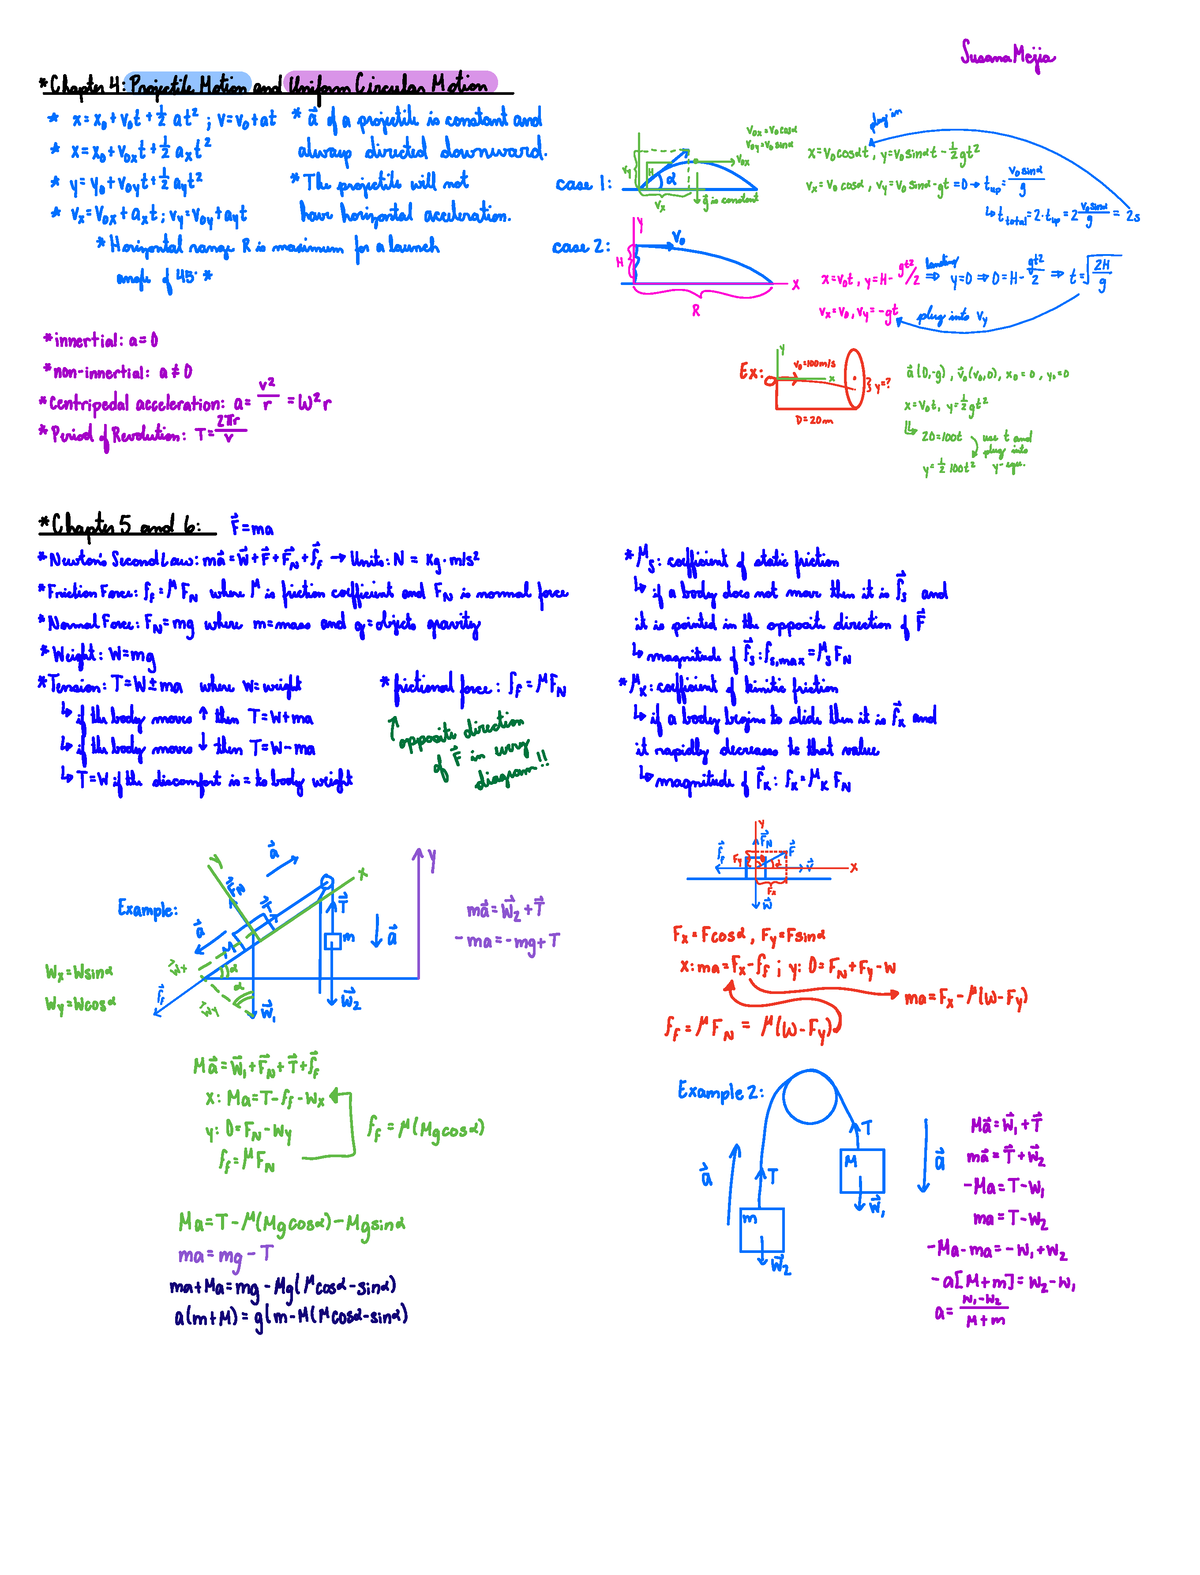 Susana Mejia
*Chapter 4: Projectile Motion and Uniform Circular Motion
* x = x₀ + v₀t + ½ at² ; v = v₀ + at
* x = x₀ + v₀ₓt + ½ aₓt²
* y = y₀ + v₀yt + ½ ayt²
* vₓ = v₀ₓ + aₓt ; vy = v₀y + ayt
* a⃗ of a projectile is constant and
always directed downward.
* The projectile will not
have horizontal acceleration.
* Horizontal range R is maximum for a launch
angle of 45° *
case 1:
vy
H
α
vₓ
v₀ₓ
v₀ₓ = v₀cosα
v₀y = v₀sinα
g⃗ is constant
plug in
x = v₀cosαt, y = v₀sinαt - ½gt²
vₓ = v₀ cosα, vy = v₀ sinα - gt = 0 → t_up = v₀sinα/g
↳ t_total = 2·t_up = 2 v₀sinα/g = 2s
case 2:
y
v₀
H
x
R
x = v₀t, y = H - gt²/2 ⇒ y = 0 ⇒ 0 = H - gt²/2 ⇒ t = √2H/g
vₓ = v₀, vy = -gt
plug into vy
*innertial: a = 0
*non-innertial: a ≠ 0
*Centripedal acceleration: a = v²/r = ω²r
*Period of Revolution: T = 2πr/v
Ex:
y
v₀ = 100m/s
x
y = ?
D = 20m
a⃗(0,-g), v⃗₀(v₀,0), x₀ = 0, y₀ = 0
x = v₀t, y = ½gt²
↳ 20 = 100t
y = ½ 100t²
use t and
plug into
y-equ.
*Chapter 5 and 6: F⃗ = ma
*Newton's Second Law: ma⃗ = W⃗ + F⃗ + F⃗N + f⃗f → Units: N = Kg·m/s²
*Friction Force: ff = μFN where μ is friction coefficient and FN is normal force
*Normal Force: FN = mg where m = mass and g = objects gravity
*Weight: W = mg
*Tension: T = W ± ma where W = weight
↳ if the body moves ↑ then T = W + ma
↳ if the body moves ↓ then T = W - ma
↳ T = W if the discomfort is = to body weight
*frictional force: ff = μFN
↑ opposite direction
of F⃗ in every
diagram!!
*μs: coefficient of static friction
↳ if a body does not move then it is f⃗s and
it is pointed in the opposite direction of F⃗
↳ magnitude of f⃗s: fs,max = μsFN
*μK: coefficient of kinetic friction
↳ if a body begins to slide then it is f⃗K and
it rapidly decreases to that value
↳ magnitude of f⃗K: fK = μK FN
Example:
y
a⃗
x
F⃗N
T⃗
a⃗
M
T⃗
m
a⃗
y
W⃗x
α
α
f⃗f
W⃗y
W⃗₁
W⃗₂
Wx = Wsinα
Wy = Wcosα
ma⃗ = W⃗₂ + T⃗
-ma = -mg + T
Ma⃗ = W⃗₁ + F⃗N + T⃗ + f⃗f
x: Ma = T - ff - Wx
y: 0 = FN - Wy
ff = μFN
ff = μ(Mgcosα)
Ma = T - μ(Mgcosα) - Mgsinα
ma = mg - T
ma + Ma = mg - Mg(μcosα - sinα)
a(m+M) = g(m - M(μcosα - sinα)
y
F⃗N
f⃗f
Fy
F⃗
α
v⃗
x
Fx
W⃗
Fx = Fcosα, Fy = Fsinα
x: ma = Fx - ff ; y: 0 = FN + Fy - W
ma = Fx - μ(W - Fy)
ff = μFN = μ(W - Fy)
Example 2:
a⃗
T
T
M
W⃗₁
m
W⃗₂
a⃗
Ma⃗ = W⃗₁ + T⃗
ma⃗ = T⃗ + W⃗₂
-Ma = T - W₁
ma = T - W₂
-Ma - ma = -W₁ + W₂
-a[M+m] = W₂ - W₁
a = W₁ - W₂/M + m